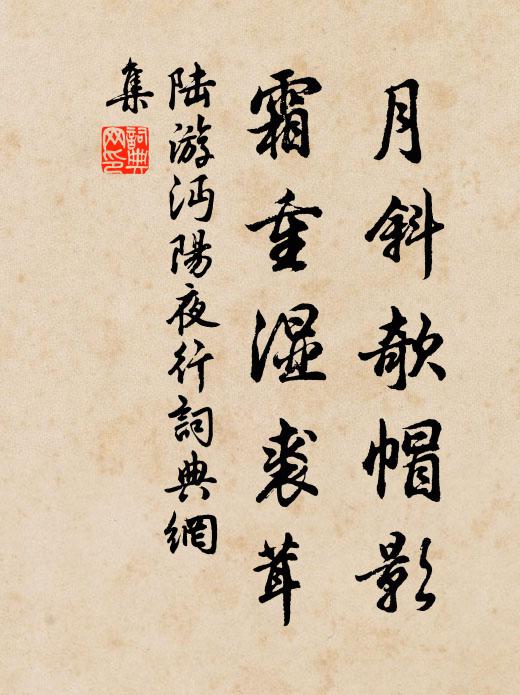 月斜欹帽影
霜重湿裘茸
陆游沔陽夜行詞典網
集
詞典
网印